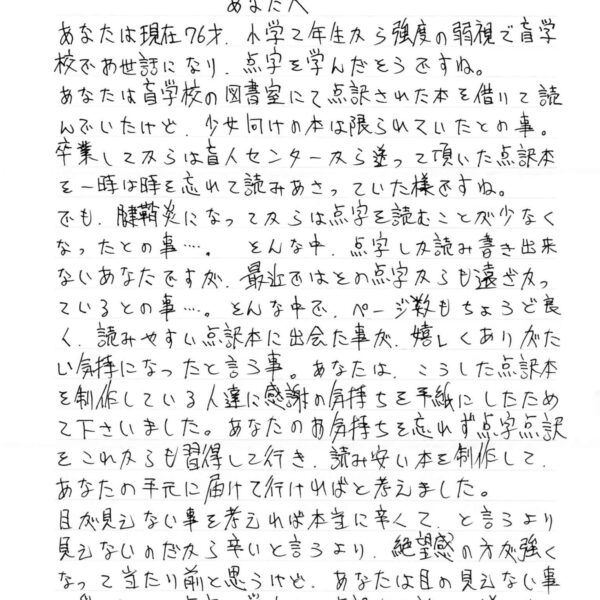 あなたへ
あなたは現在76才、小学2年生から強度の弱視で盲学
校でお世話になり、点字を学んだそうですね。
あなたは盲学校の図書室にて点訳された本を借りて読
んでいたけど、少女向けの本は限られていたとの事。
卒業してからは盲人センターから送って頂いた点訳本
を一時は時を忘れて読みあさっていた様ですね。
でも、腱鞘炎になってからは点字を読むことが少なく
なったとの事…。そんな中、点字しか読み書き出来
ないあなたですが、最近ではその点字からも遠ざかっ
ているとの事…。そんな中で、ページ数もちょうど良
く、読みやすい点訳本に出会た事が、嬉しくありがた
い気持になったと言う事。あなたは、こうした点訳本
を制作している人達に感謝の気持ちを手紙にしたため
て下さいました。あなたのお気持ちを忘れず点字点訳
をこれからも習得して行き、読み安い本を制作して、
あなたの手元に届けて行ければと考えました。
目が見えない事を考えれば本当に辛くて、と言うより
見えないのだから辛いと言うより、絶望感の方が強く
なって当たり前と思うけど、あなたは目の見えない事